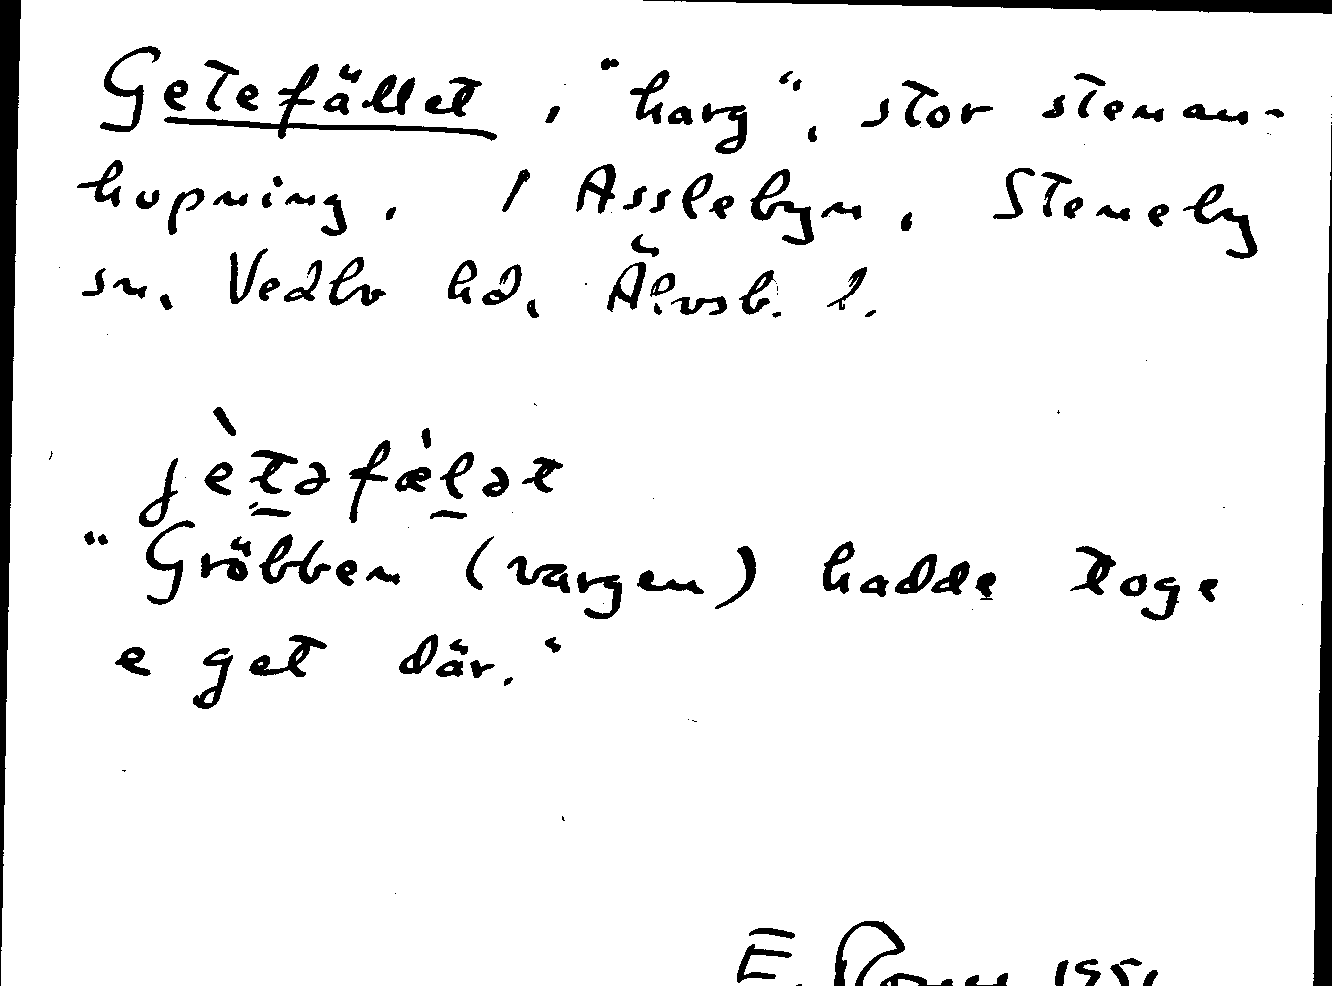 Getefället, "harg", stor stenan-
hopning, i Asslebyn, Steneby
sn, Vedbo hd, Älvsb. l.
jètəfæ̀lət
"Gröbben (vargen) hadde toge
e get där."
E.